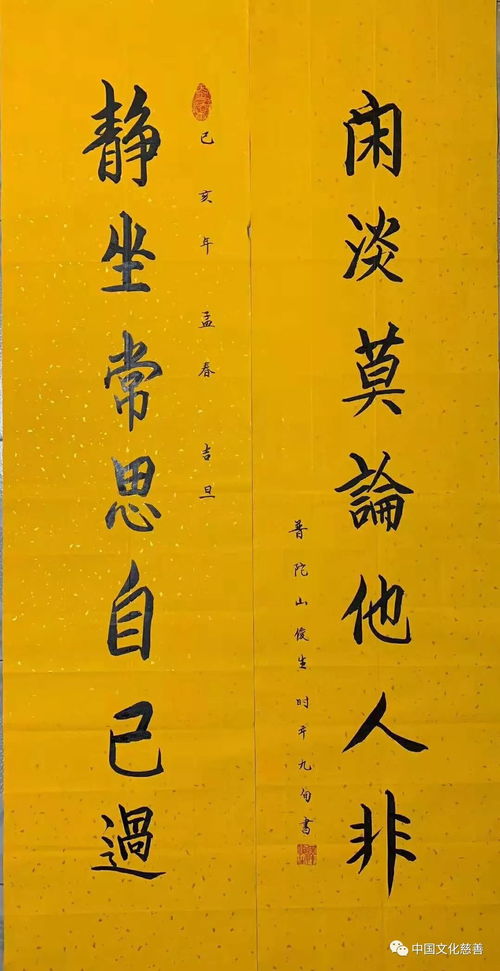 闲淡莫論他人非
普陀山俊生时年九旬書
己亥年孟春吉旦
静坐常思自己過
中国文化慈善